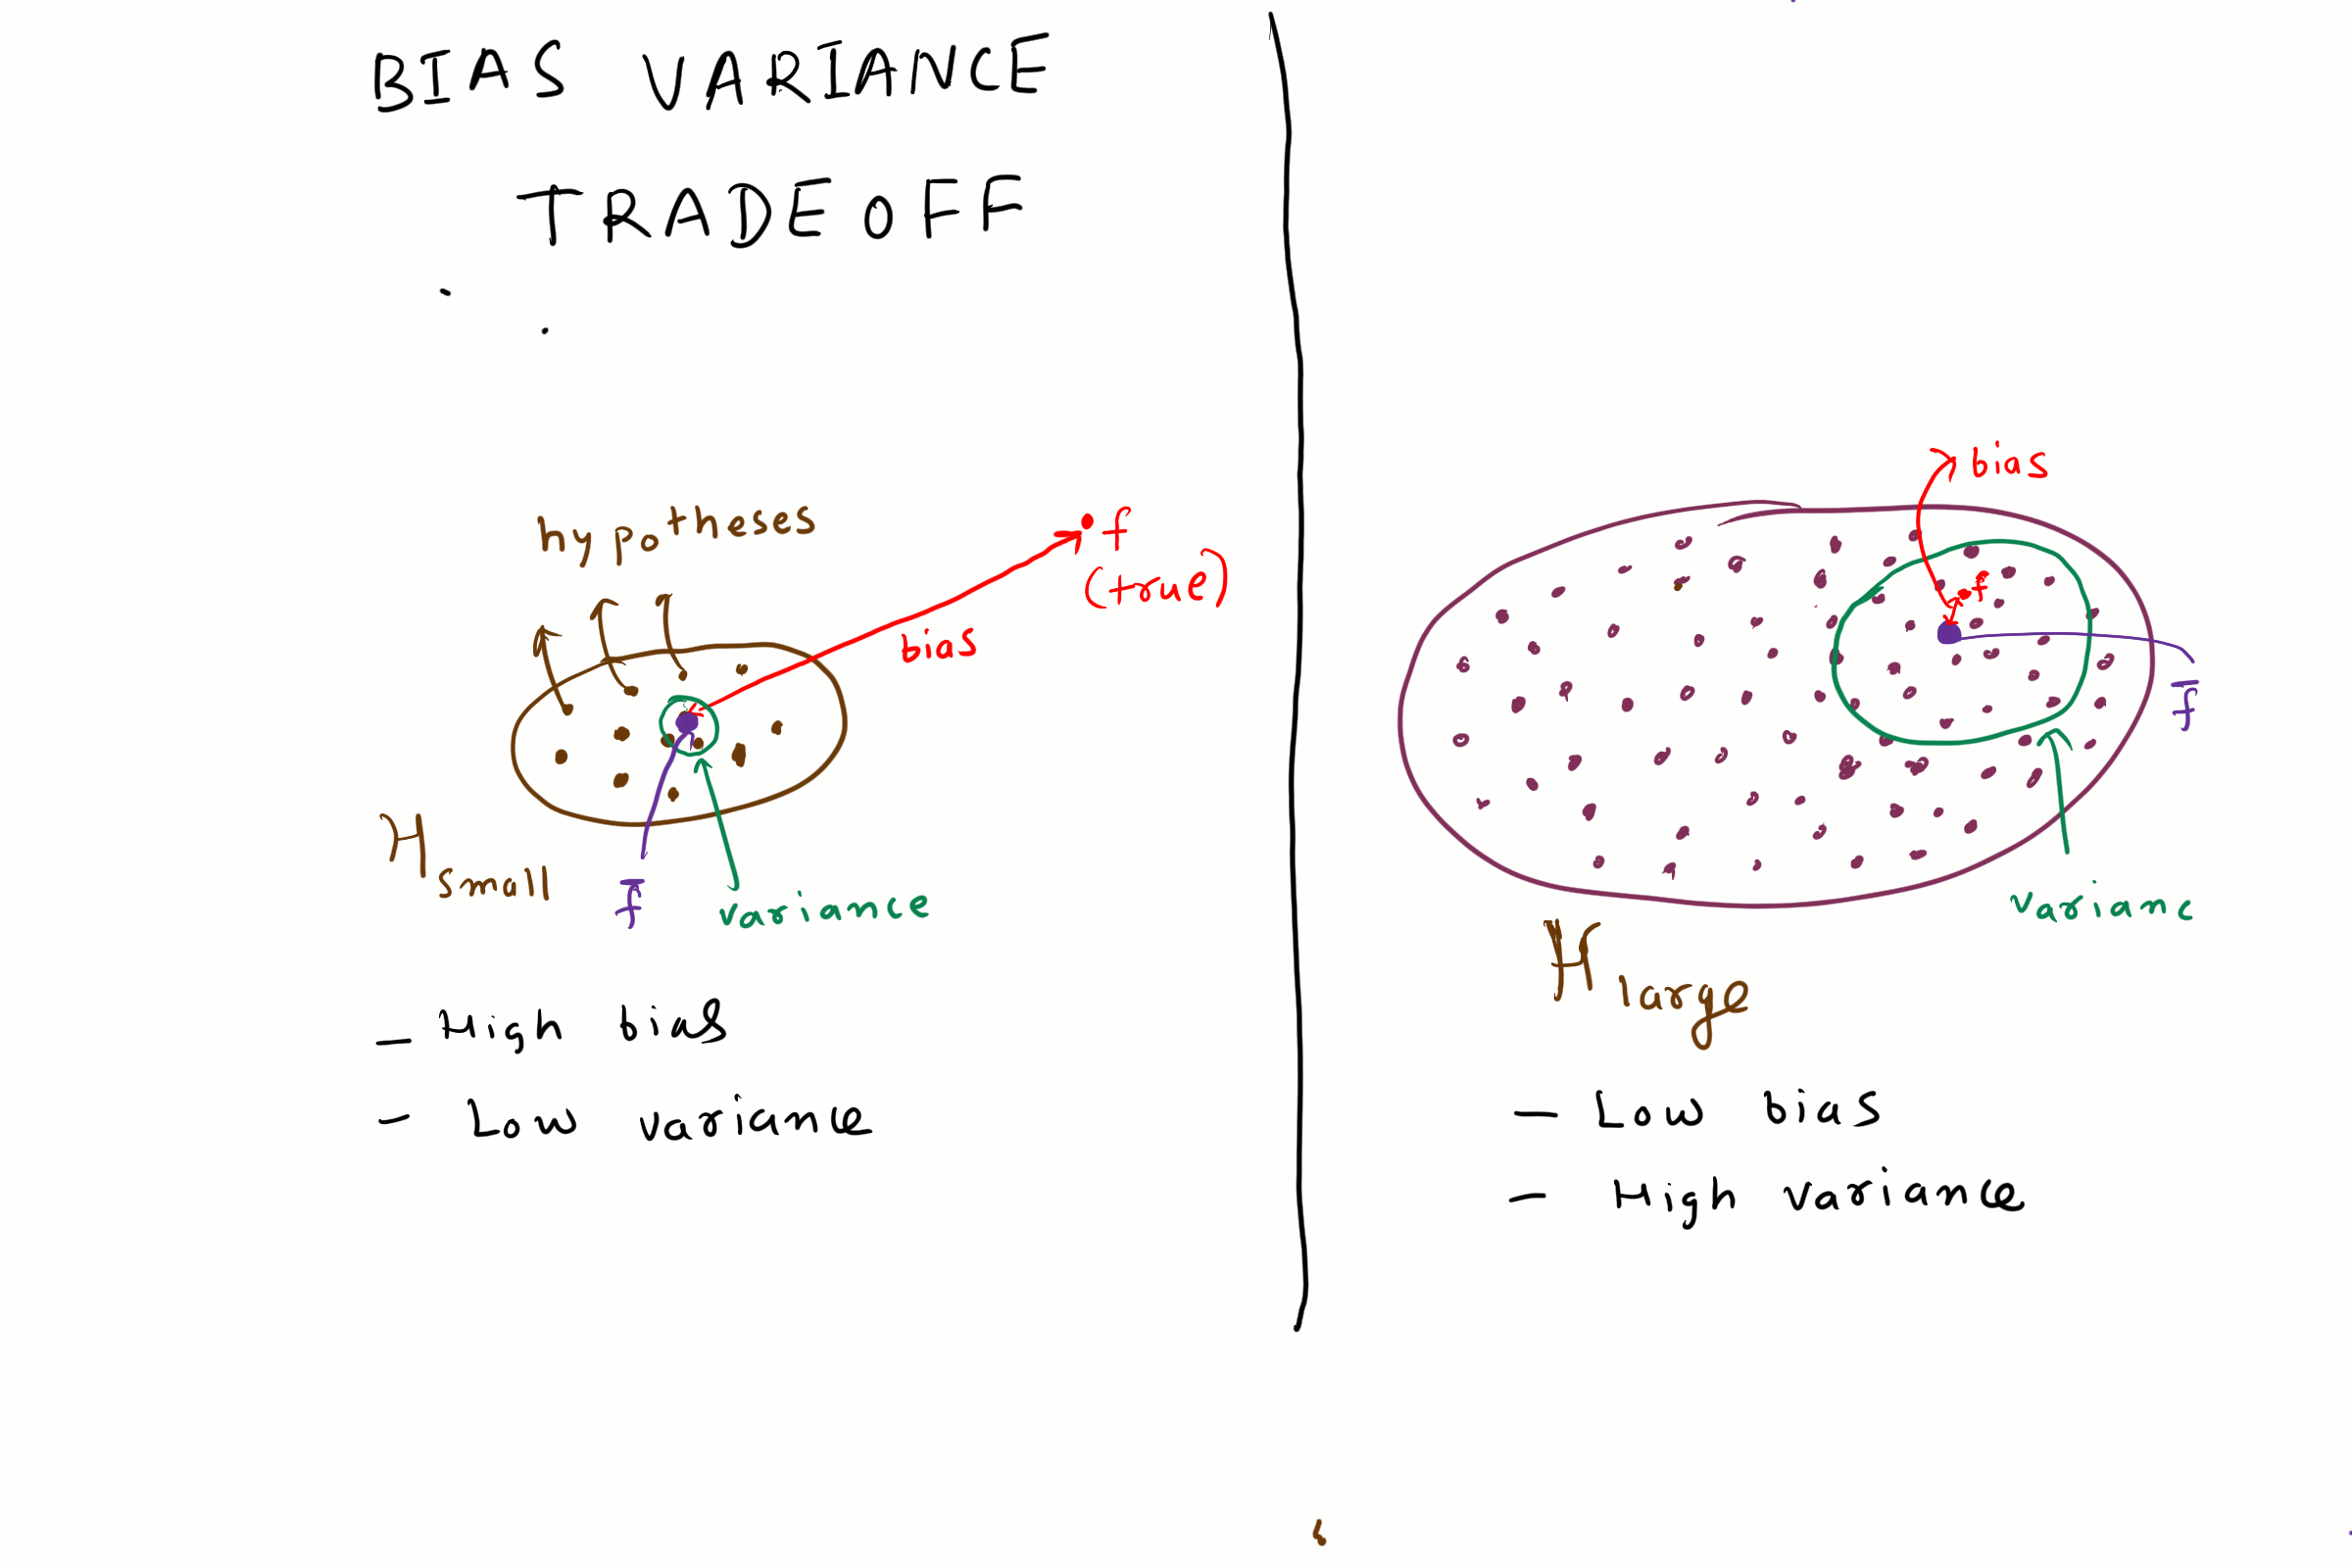 BIAS VARIANCE
TRADEOFF
hypotheses
f
(true)
bias
H small
f̄
variance
- High bias
- Low variance
bias
f
f̄
varianc
H large
- Low bias
- High variance